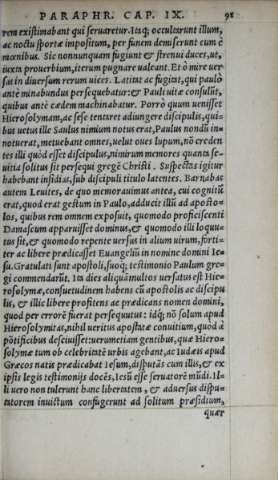 PARAPHR. CAP. IX. 91
rem existimabant qui seruaretur. Itaq; occuluerunt illum,
ac noctu sportæ impositum, per funem demiserunt cum è
mœnibus. Sic nonnunquam fugiunt & strenui duces, ut,
iuxta prouerbium, iterum pugnare ualeant. Et ô mire uer
sat in diuersum rerum uices. Latitat ac fugitat, qui paulò
ante minabundus persequebatur: & Pauli uitæ consulūt,
quibus antè cædem machinabatur. Porrò quum uenisset
Hierosolymam, ac sese tentaret adiungere discipulis, qui-
bus uetus ille Saulus nimium notus erat, Paulus nondū in-
notuerat, metuebant omnes, uelut oues lupum, nō creden
tes illi quòd esset discipulus, nimirum memores quanta sæ-
uitia solitus sit persequi gregē Christi. Suspectas igitur
habebant insidias, sub discipuli titulo latentes. Barnabas
autem Leuites, de quo memorauimus antea, cui cognitū
erat, quod erat gestum in Paulo, adducit illū ad aposto-
los, quibus rem omnem exposuit, quomodo proficiscenti
Damascum apparuisset dominus, & quomodo illi loquu-
tus sit, & quomodo repente uersus in alium uirum, forti-
ter ac libere prædicasset Euangeliū in nomine domini Ie-
su. Gratulati sunt apostoli, suoq; testimonio Paulum gre-
gi commendarūt. Ita dies aliquā multos uersatus est Hie-
rosolymæ, consuetudinem habens cū apostolis ac discipu
lis, & illic libere profitens ac prædicans nomen domini,
quod per errorē fuerat persequutus: idq; nō solum apud
Hierosolymitas, nihil ueritus apostatæ conuitium, quod à
pōtificibus desciuisset: uerumetiam gentibus, quæ Hiero-
solymæ tum ob celebritatē urbis agebant, ac Iudæis apud
Græcos natis prædicabat Iesum, disputās cum illis, & ex
ipsis legis testimonijs docēs, Iesū esse seruatorē mūdi. Il-
li uero non tulerunt hanc libertatem, & aduersus dispu-
tatorem inuictum confugerunt ad solitum præsidium,
quær